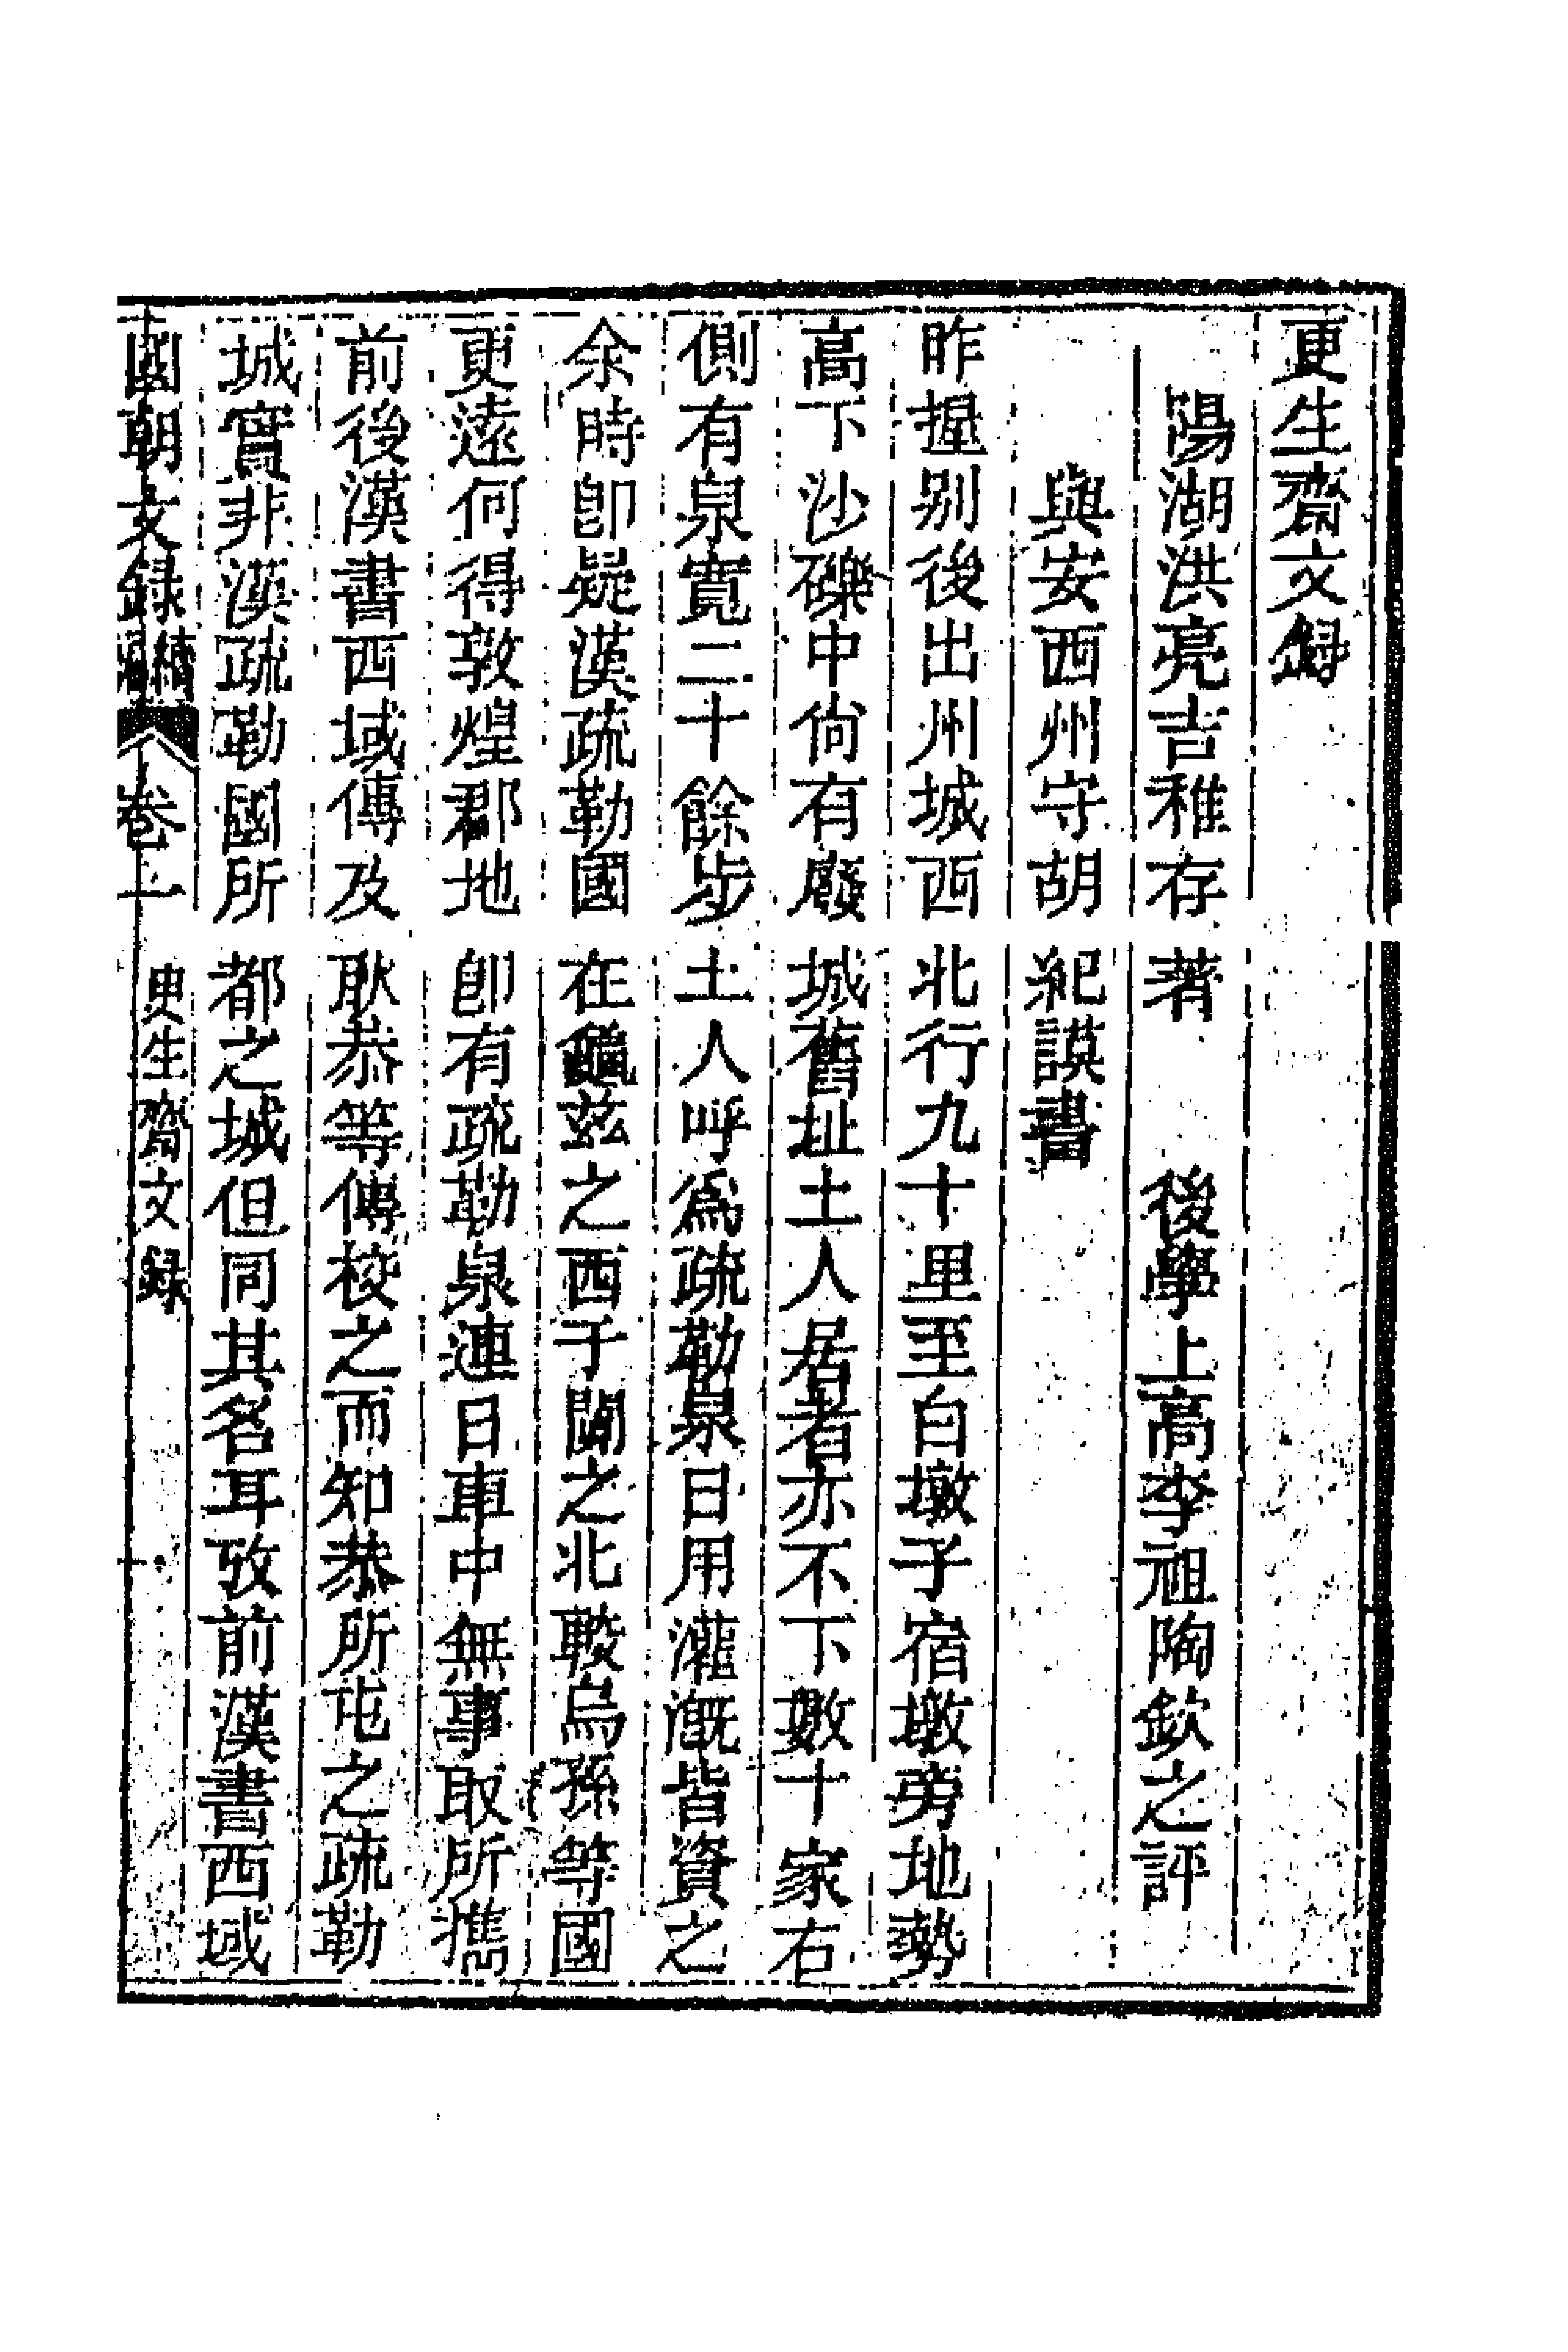 更生齋文録
陽湖洪亮吉稚存著　後學上高李祖陶欽之評
與安西州守胡紀謨書
昨握别後出州城西北行九十里至白墩子宿墩旁地勢
高下沙礫中尙有廢城舊址土人居者亦不下數十家右
側有泉寬二十餘步土人呼爲疏勒泉日用灌漑皆資之
余時卽疑漢疏勒國在龜兹之西于闐之北較烏孫等國
更遠何得敦煌郡地卽有疏勒泉連日車中無事取所攜
前後漢書西域傳及耿恭等傳校之而知恭所屯之疏勒
城實非漢疏勒國所都之城但同其名耳攷前漢書西域
國朝文録續編　卷一　更生齋文録